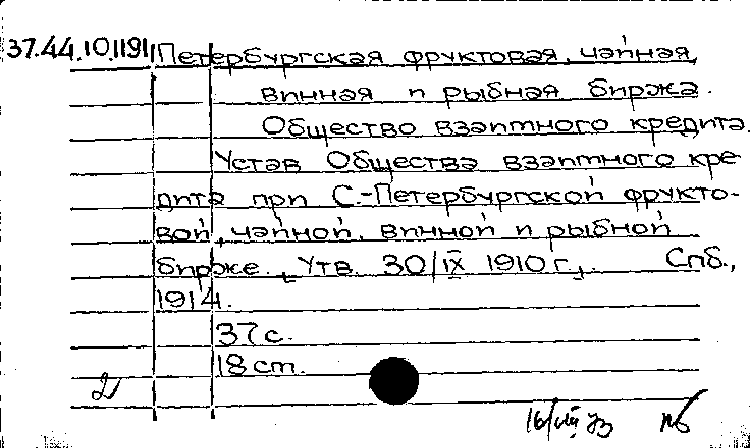 37.44.10.1191 Петербургская фруктовая, чайная,
винная и рыбная биржа.
Общество взаимного кредита.
Устав Общества взаимного кре-
дита при С.-Петербургской фрукто-
вой, чайной, винной и рыбной
бирже. [Утв. 30/IX 1910 г.]. Спб.,
1914.
37 с.
18 см.
2
16/VIII 73